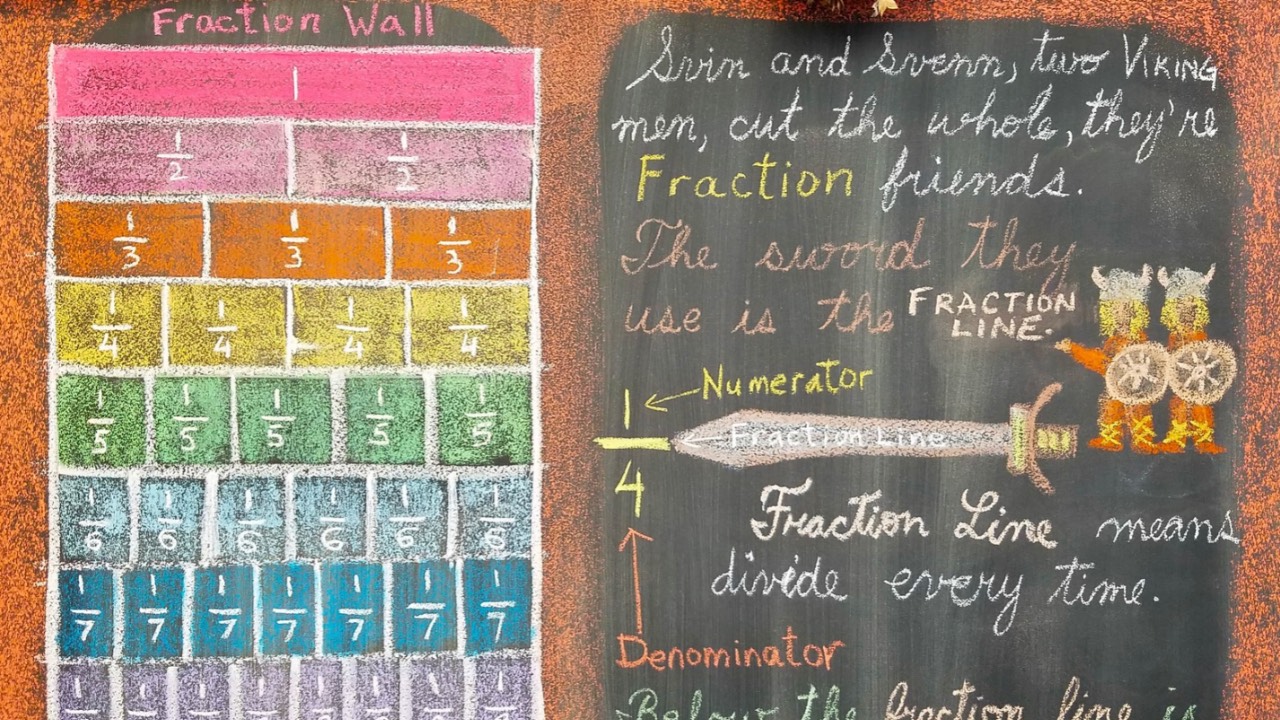 Fraction Wall
1
1/2 1/2
1/3 1/3 1/3
1/4 1/4 1/4 1/4
1/5 1/5 1/5 1/5 1/5
1/6 1/6 1/6 1/6 1/6 1/6
1/7 1/7 1/7 1/7 1/7 1/7 1/7
1 1 1 1 1 1 1 1
Svin and Svenn, two VIKING
men, cut the whole, they're
Fraction friends.
The sword they
use is the FRACTION
LINE.
1 Numerator
Fraction Line
4
Fraction Line means
divide every time.
Denominator
Below the fraction line is